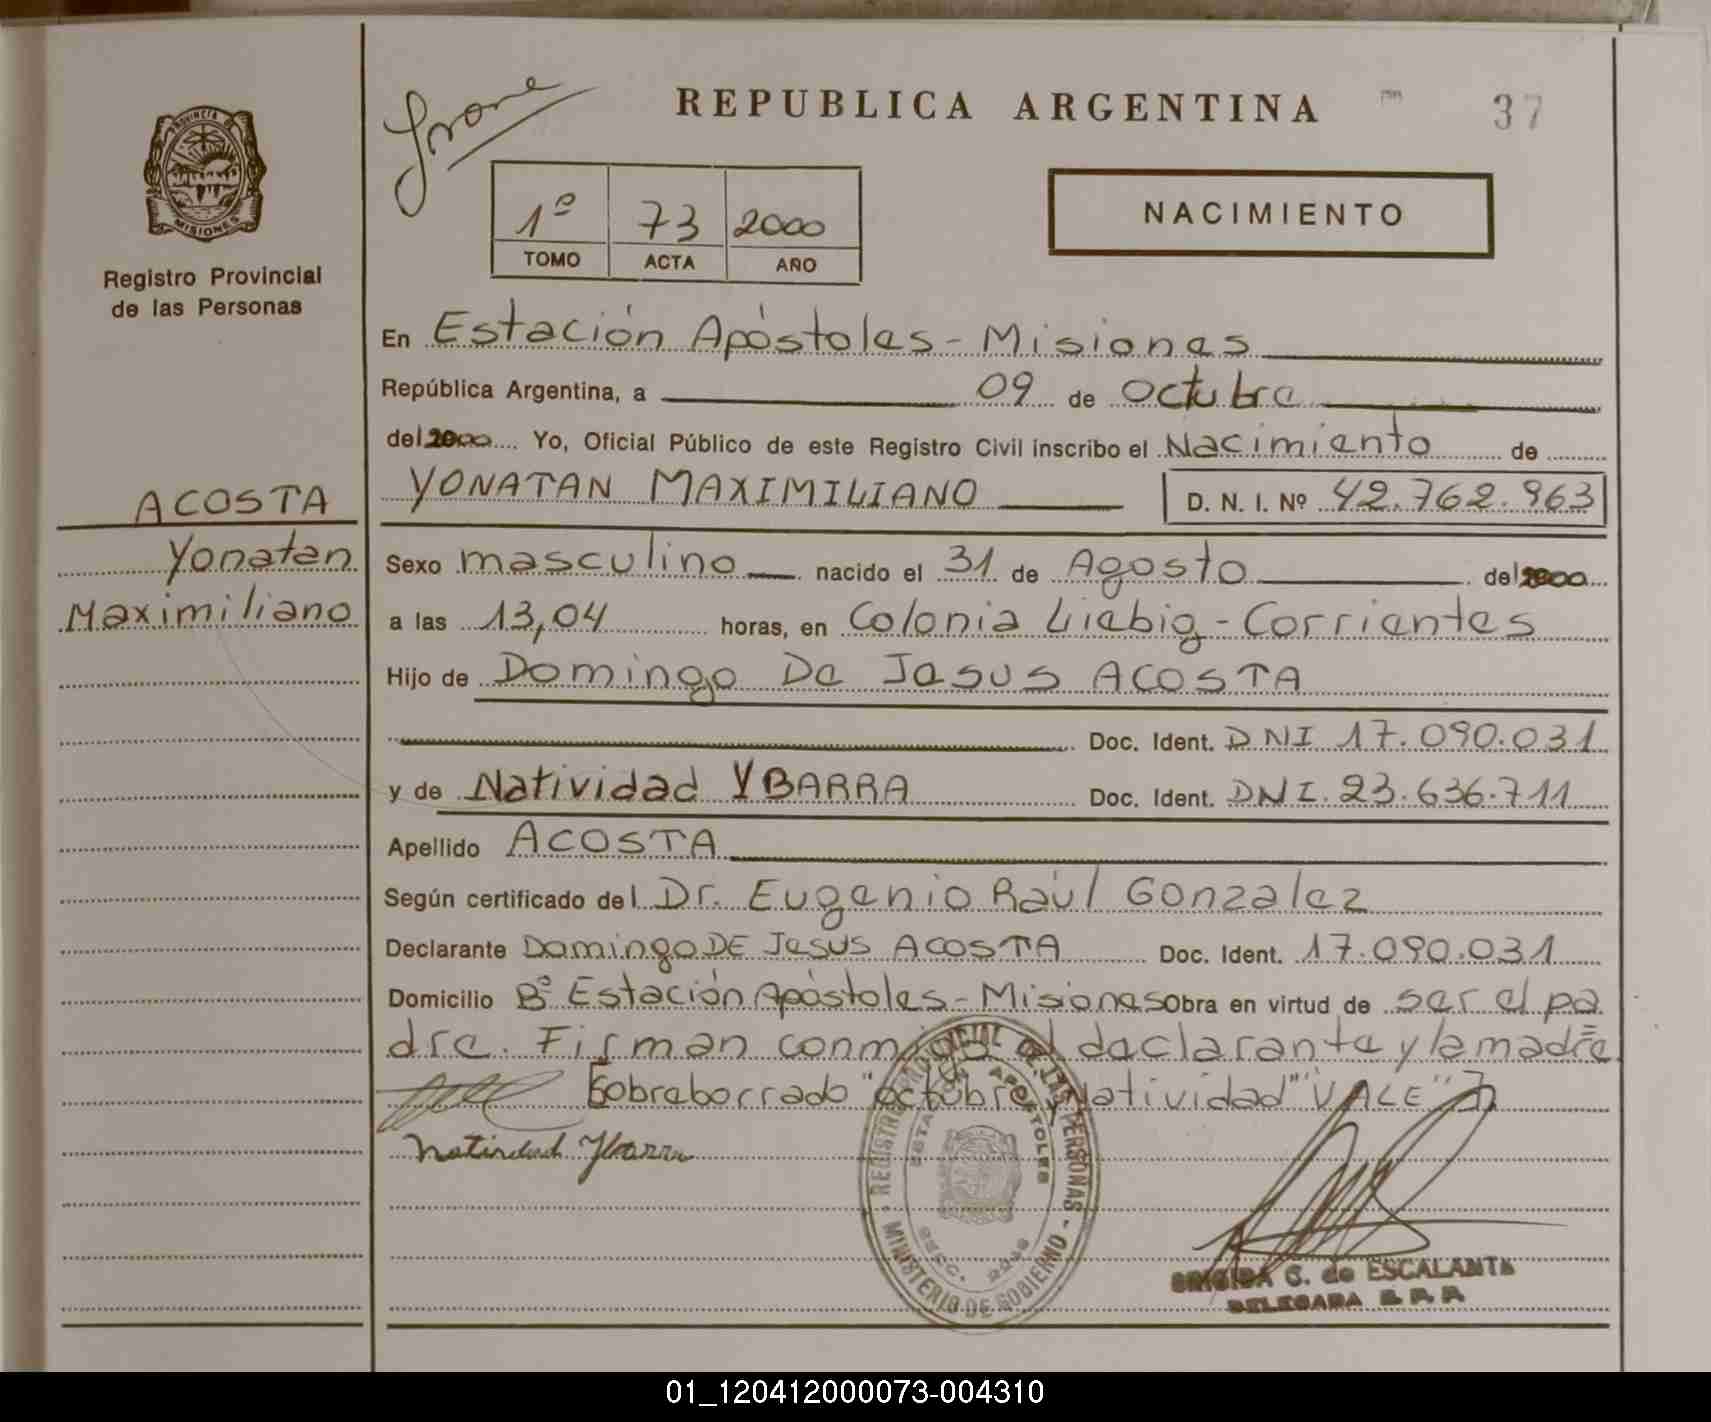 REPUBLICA ARGENTINA
37
PROVINCIA
MISIONES
Registro Provincial
de las Personas
1º 73 2000
TOMO ACTA AÑO
NACIMIENTO
En Estación Apóstoles - Misiones
República Argentina, a 09 de Octubre
del 2000 Yo, Oficial Público de este Registro Civil inscribo el Nacimiento de
YONATAN MAXIMILIANO D. N. I. Nº 42.762.963
ACOSTA
Yonatan
Maximiliano
Sexo masculino nacido el 31 de Agosto del 2000
a las 13,04 horas, en Colonia Liebig - Corrientes
Hijo de Domingo De Jesus ACOSTA
Doc. Ident. DNI 17.090.031
y de Natividad YBARRA Doc. Ident. DNI. 23.636.711
Apellido ACOSTA
Según certificado del Dr. Eugenio Raúl Gonzalez
Declarante Domingo DE Jesus ACOSTA Doc. Ident. 17.090.031
Domicilio Bº Estación Apóstoles - Misiones Obra en virtud de ser el pa
dre. Firman conmigo el declarante y la madre
Sobreborrado "octubre y Natividad" "VALE"
Natividad Ybarra
REGISTRO PROVINCIAL DE LAS PERSONAS - MINISTERIO DE GOBIERNO
ESTACION APOSTOLES
BRIGIDA C. de ESCALANTE
DELEGADA R. P. P.
01_120412000073-004310